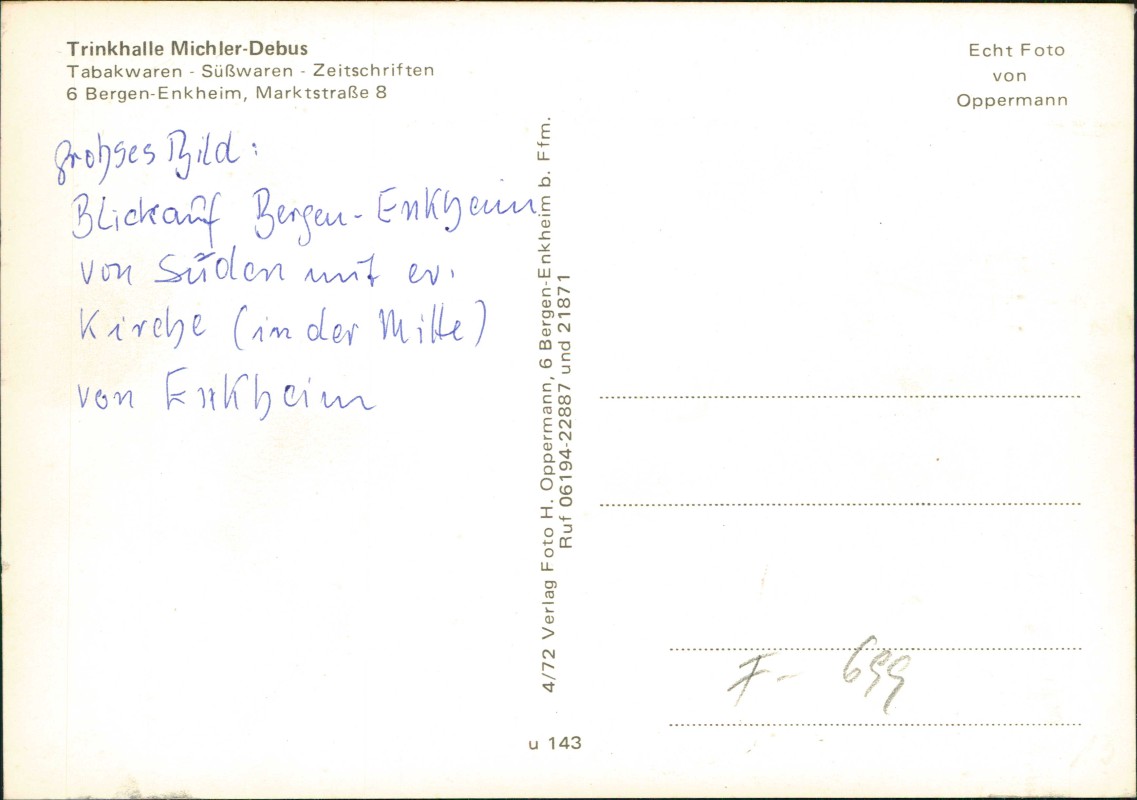 Trinkhalle Michler-Debus
Tabakwaren - Süßwaren - Zeitschriften
6 Bergen-Enkheim, Marktstraße 8
Echt Foto
von
Oppermann
großes Bild:
Blick auf Bergen-Enkheim
von Süden mit ev.
Kirche (in der Mitte)
von Enkheim
4/72 Verlag Foto H. Oppermann, 6 Bergen-Enkheim b. Ffm.
Ruf 06194-22887 und 21871
F - 699
u 143